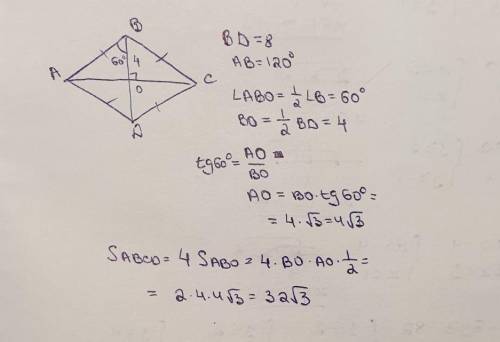 B
60° 4
A
O
C
D
BD=8
AB=120°
∠ABO=1/2 ∠B=60°
BO=1/2 BD=4
tg60°=AO/BO
AO=BO·tg60°=
=4·√3=4√3
SABCD=4SABO=4·BO·AO·1/2=
=2·4·4√3=32√3